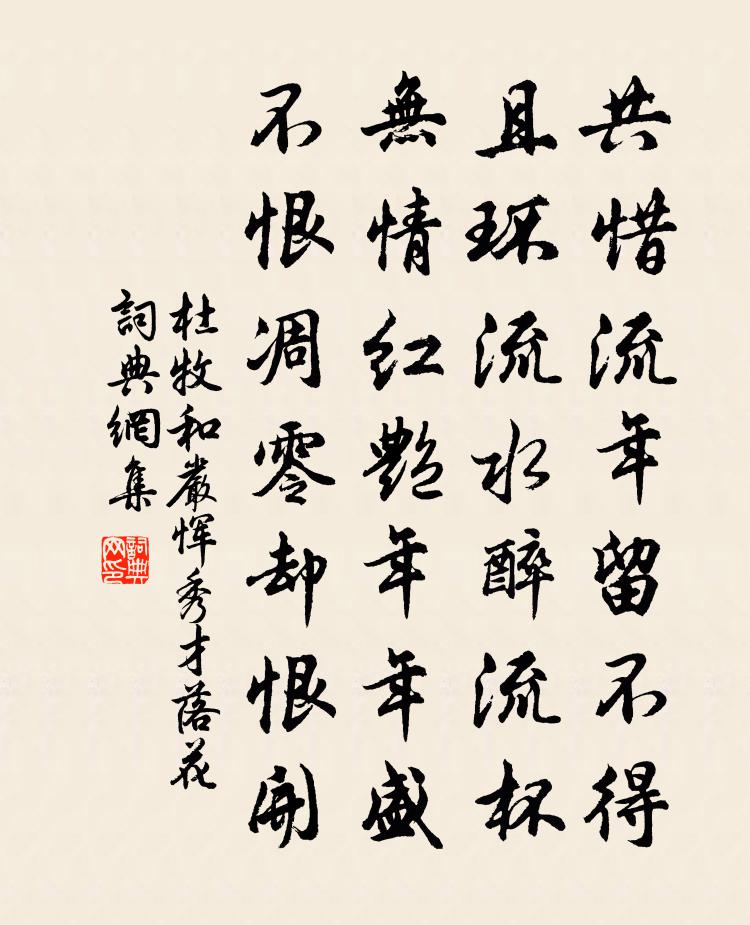 共惜流年留不得
且環流水醉流杯
無情紅艷年年盛
不恨凋零却恨開
杜牧和嚴惲秀才落花
詞典網集
詞典
网印